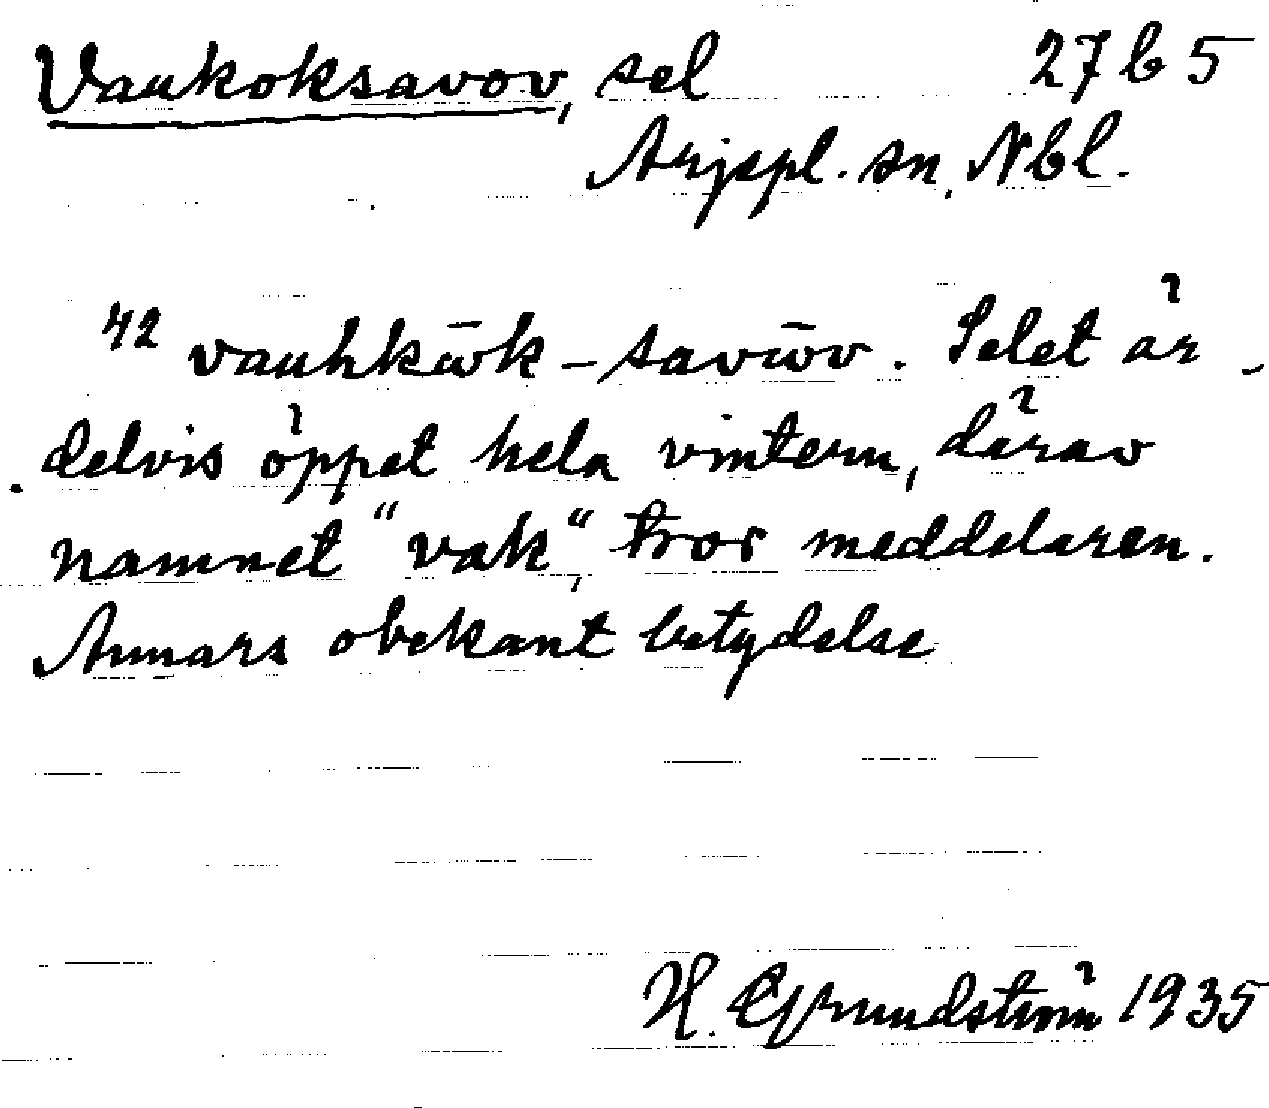 Vaukoksavov, sel 27 b 5
Arjepl. sn, Nbl.
42 vauhkω̄k-savω̄v. Selet är
delvis öppet hela vintern, därav
namnet "vak", tror meddelaren.
Annars obekant betydelse
H. Grundström 1935